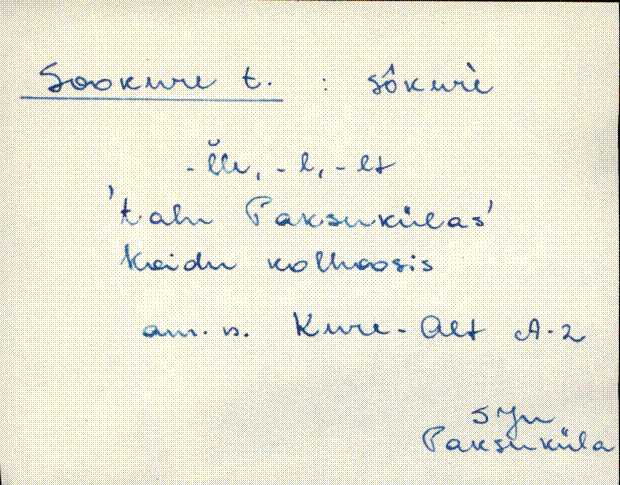 Sookure t. : sôkurè
-l̆le, -l, -lt
'talu Paksukülas'
Kaidu kolhoosis
am. n. Kure-Alt A-2
SJn
Paksuküla